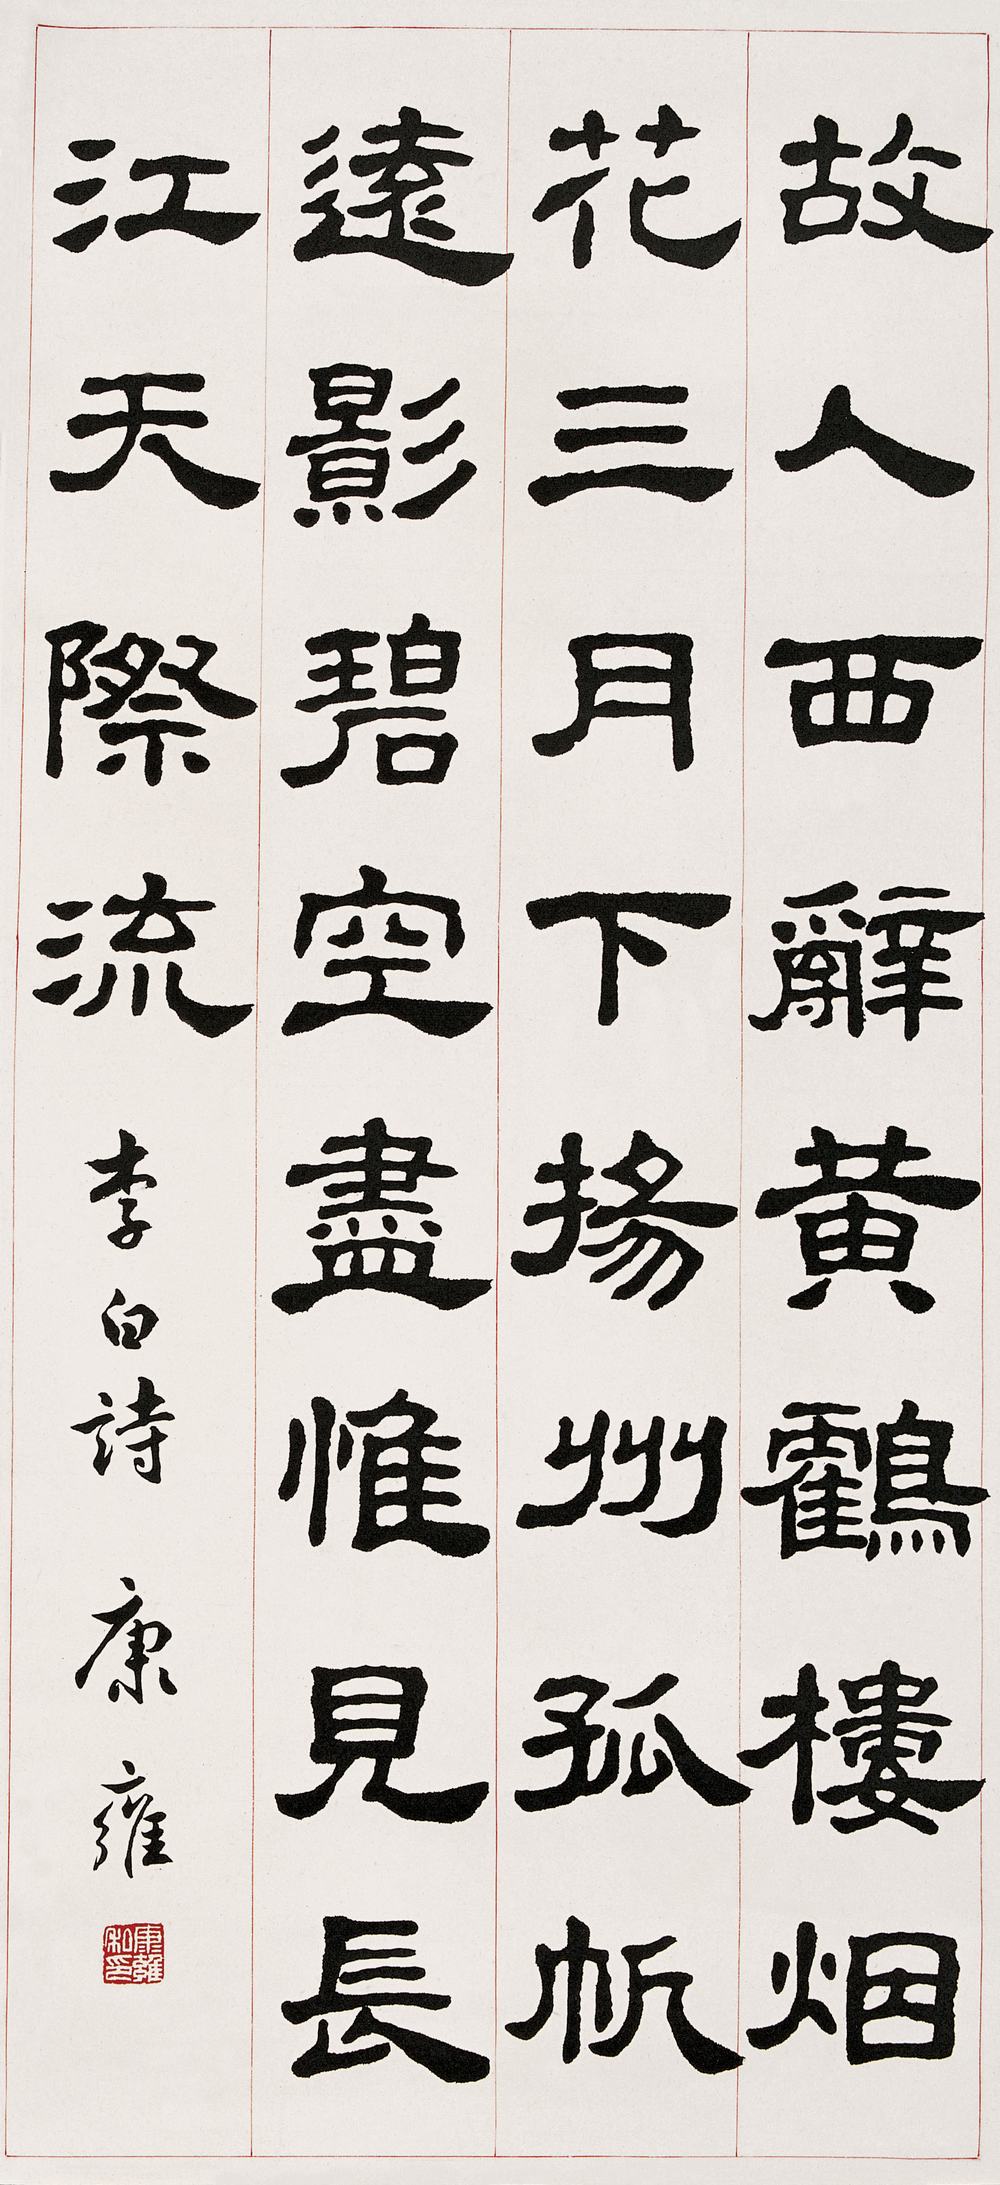 故人西辭黃鶴樓烟
花三月下揚州孤帆
遠影碧空盡惟見長
江天際流李白詩康雍
康雍和印